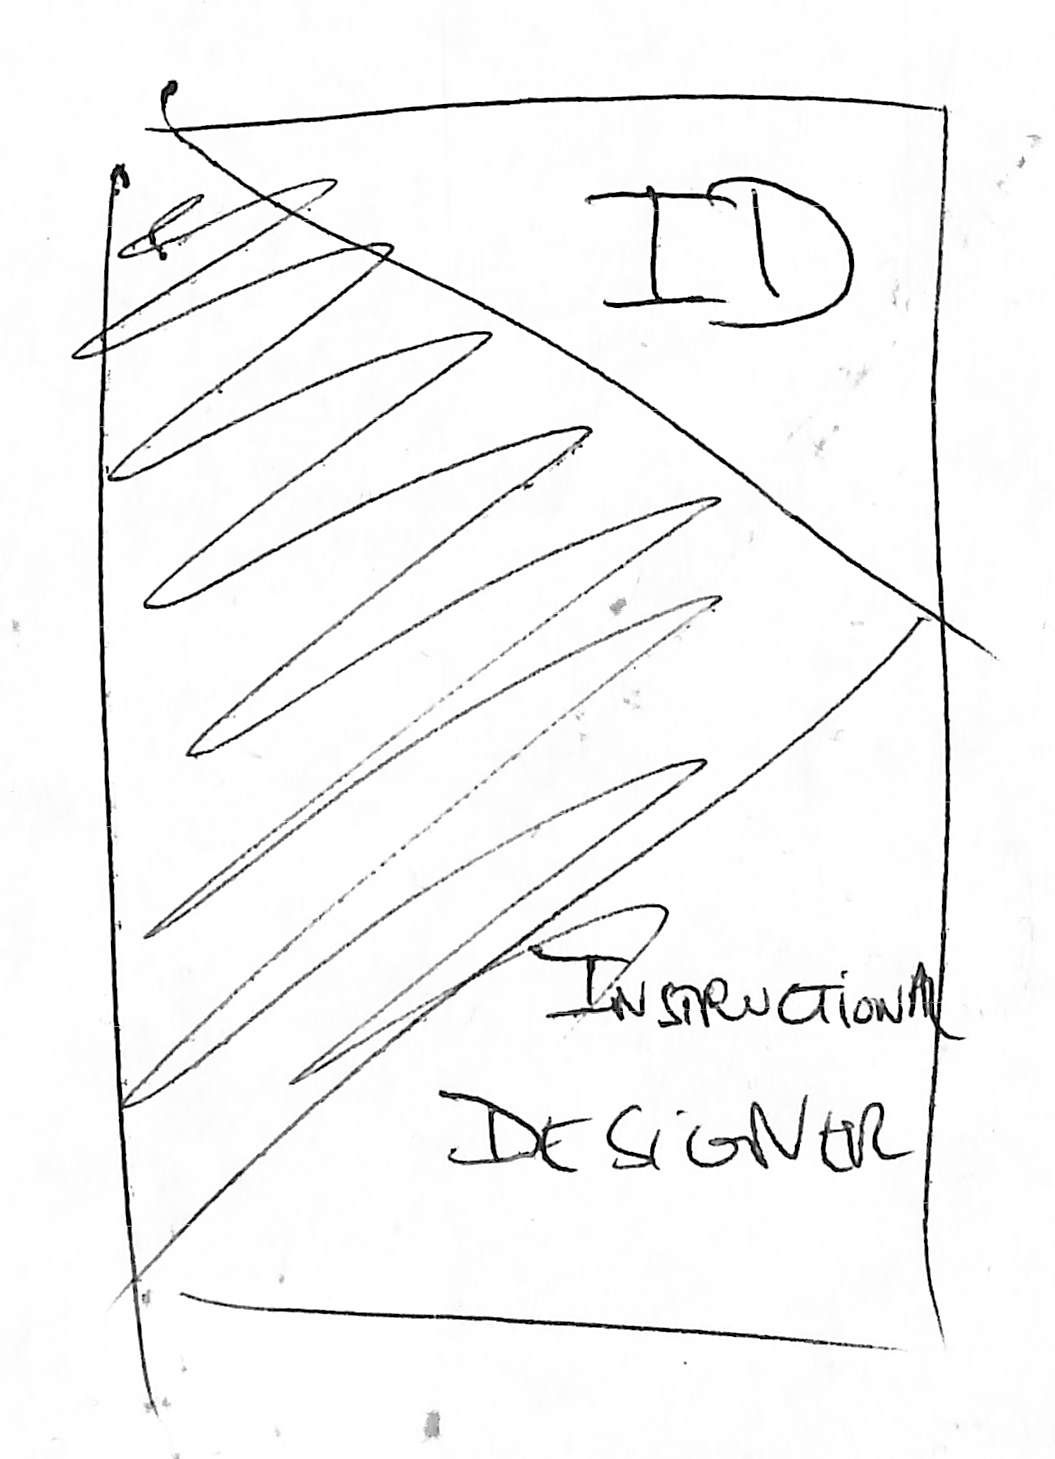 ID
INSTRUCTIONAL
DESIGNER